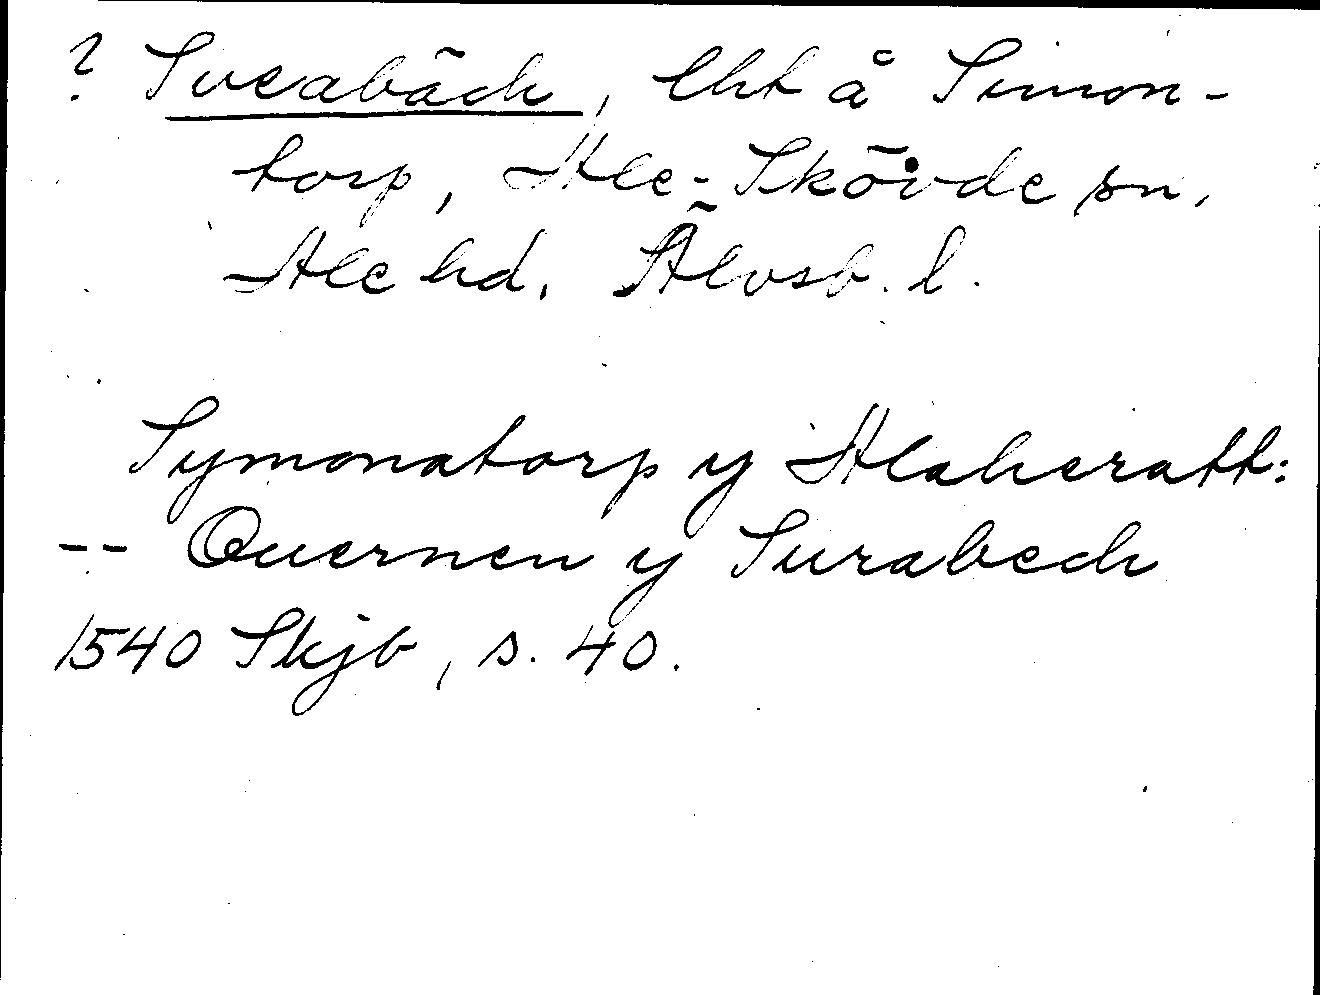 ? Sveabäck, lht å Simon-
torp, Ale-Skövde sn,
Ale hd. Älvsb. l.
Symonatorp y Alaheratt:
-- Quernen y Surabech
1540 Skjb, s. 40.